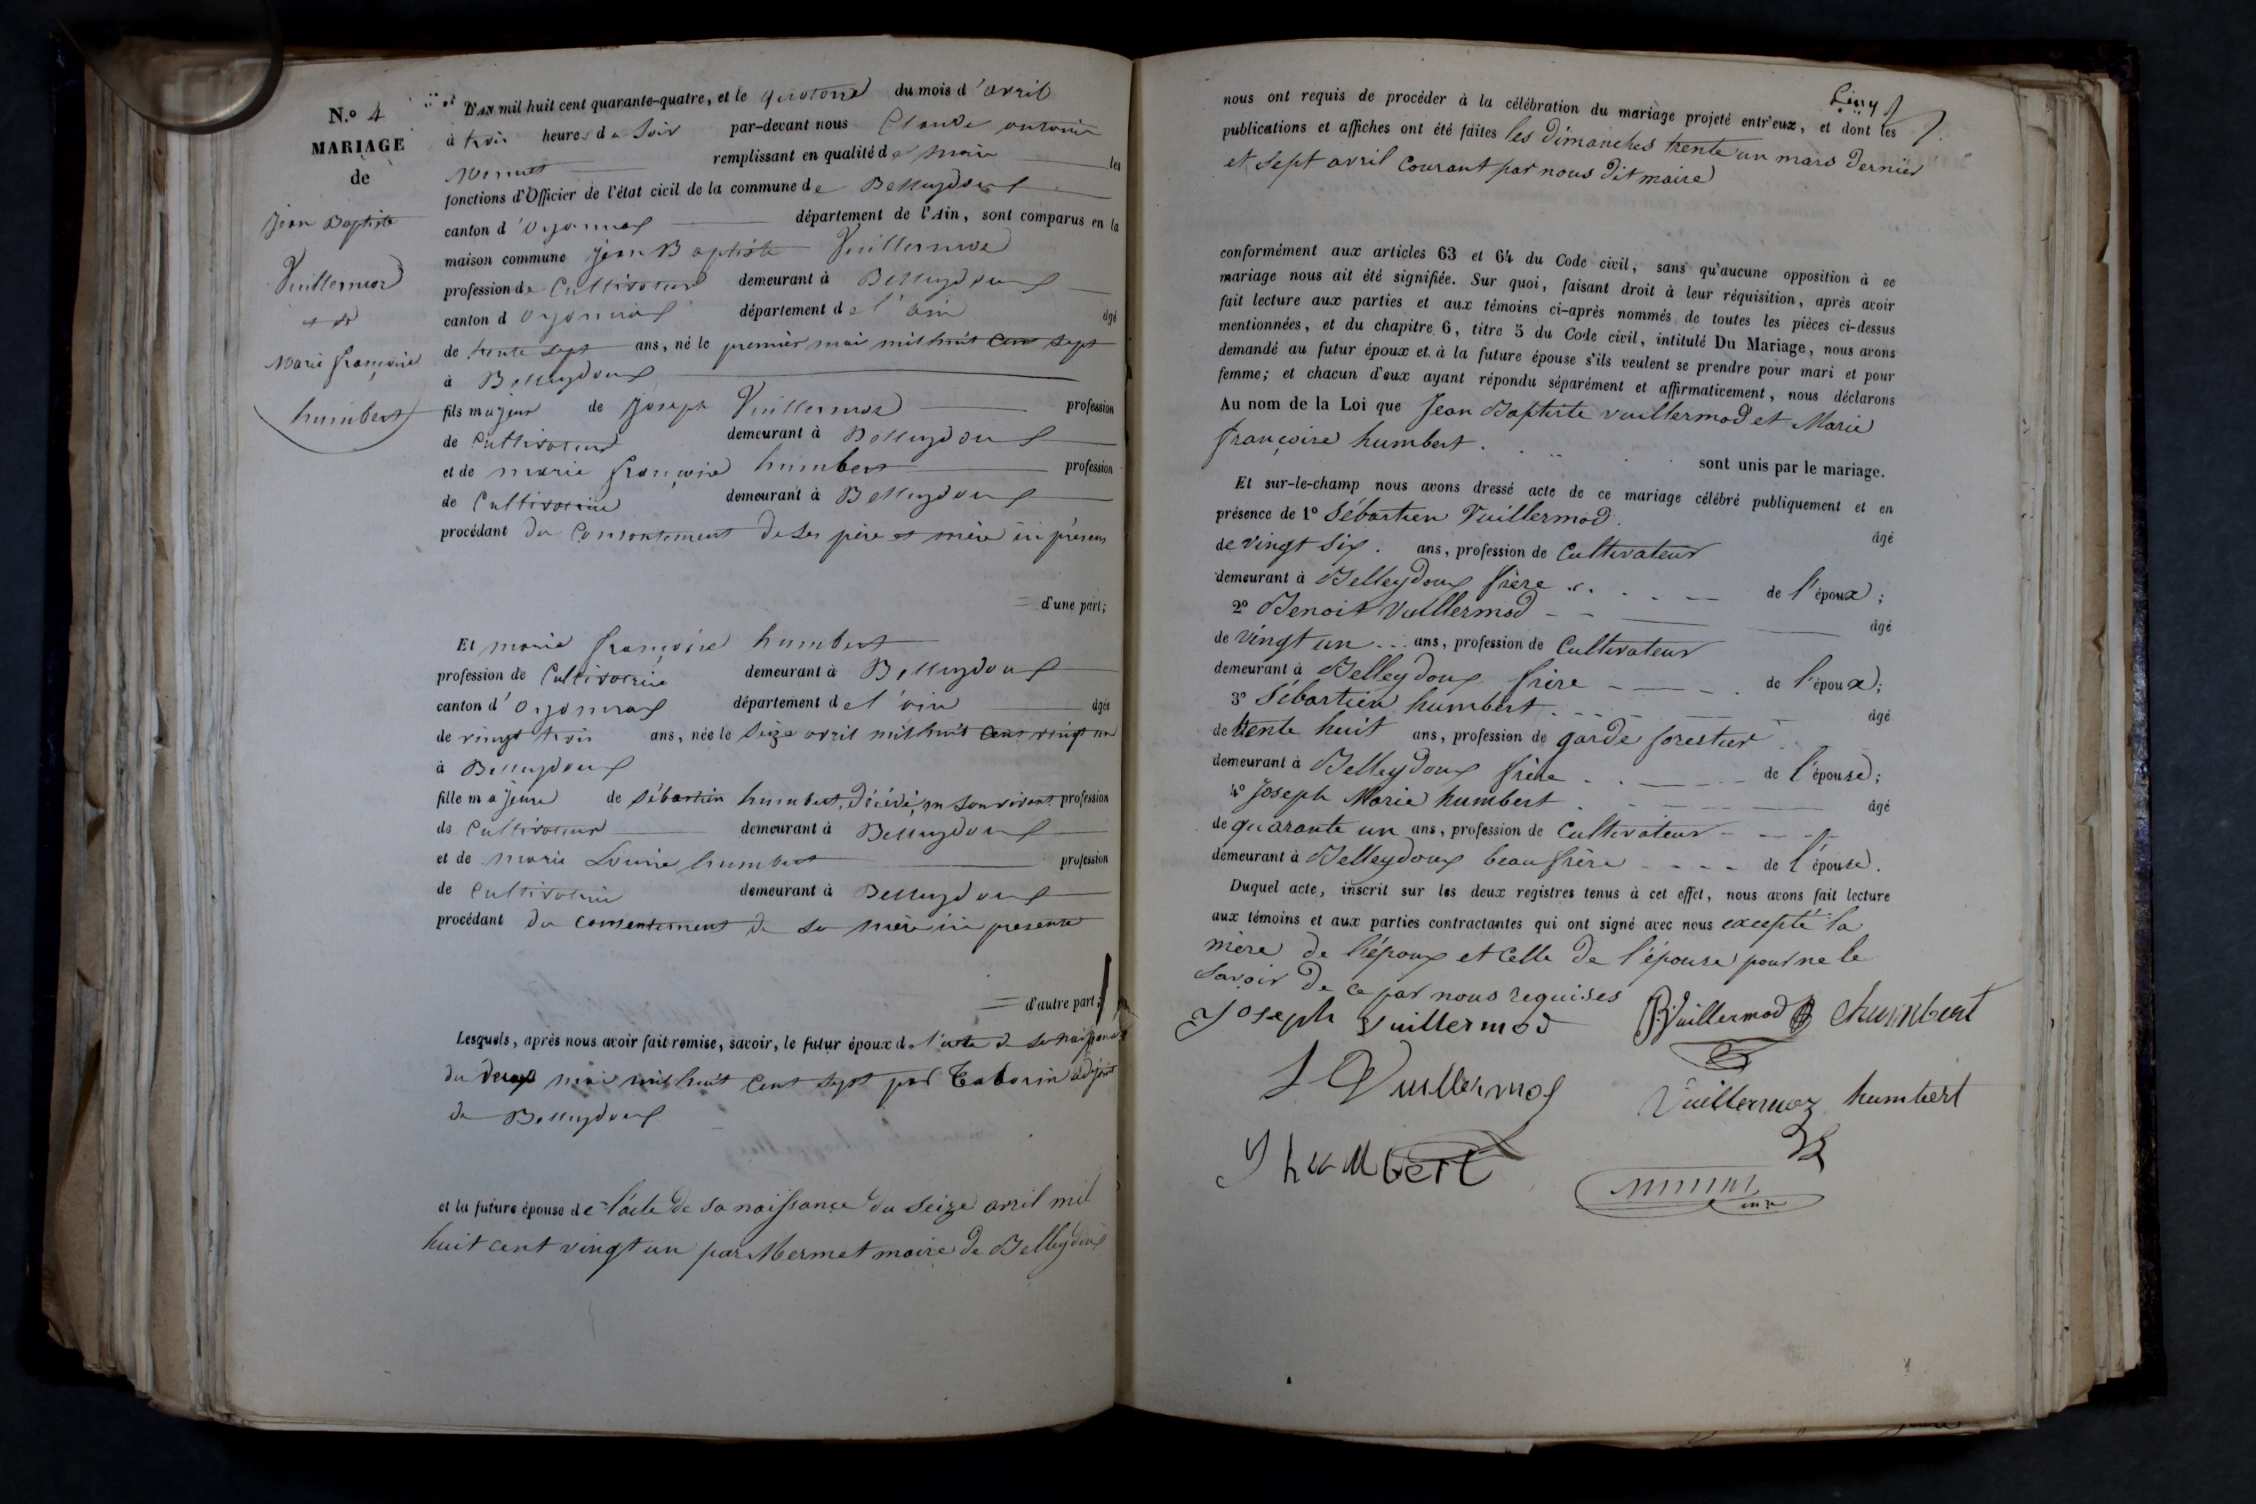 N.o 4
MARIAGE
de
Jean Baptiste
Vuillermoz
et de
Marie françoise
humbert
L'AN mil huit cent quarante-quatre, et le quatorze du mois d'avril
à trois heures de soir par-devant nous Claude antoine
Mermet remplissant en qualité de maire les
fonctions d'Officier de l'état civil de la commune de Belleydoux
canton d'Oyonnax département de l'Ain, sont comparus en la
maison commune jean Baptiste Vuillermoz
profession de Cultivateur demeurant à Belleydoux
canton d Oyonnax département de l'ain âgé
de trente sept ans, né le premier mai mil huit cent sept
à Belleydoux
fils majeur de Joseph Vuillermoz profession
de Cultivateur demeurant à Belleydoux
et de marie françoise humbert profession
de Cultivatrice demeurant à Belleydoux
procédant du Consentement de ses père et mère ici présens
d'une part;
Et marie françoise humbert
profession de Cultivatrice demeurant à Belleydoux
canton d'Oyonnax département de l'ain âgée
de vingt trois ans, née le seize avril mil huit cent vingt un
à Belleydoux
fille majeure de sébastien humbert, décédé, en son vivant profession
de Cultivateur demeurant à Belleydoux
et de marie Louise humbert profession
de Cultivatrice demeurant à Belleydoux
procédant du consentement de sa mère ici presente
d'autre part;
Lesquels, après nous avoir fait remise, savoir, le futur époux de l'acte de sa naissance
du deux mai mil huit cent sept par Taborin adjoint
de Belleydoux
et la future épouse de l'acte de sa naissance du seize avril mil
huit cent vingt un par Mermet maire de Belleydoux
nous ont requis de procéder à la célébration du mariage projeté entr'eux, et dont les
publications et affiches ont été faites les dimanches trente un mars dernier
et sept avril courant par nous dit maire
conformément aux articles 63 et 64 du Code civil, sans qu'aucune opposition à ce
mariage nous ait été signifiée. Sur quoi, faisant droit à leur réquisition, après avoir
fait lecture aux parties et aux témoins ci-après nommés de toutes les pièces ci-dessus
mentionnées, et du chapitre 6, titre 5 du Code civil, intitulé Du Mariage, nous avons
demandé au futur époux et à la future épouse s'ils veulent se prendre pour mari et pour
femme; et chacun d'eux ayant répondu séparément et affirmativement, nous déclarons
Au nom de la Loi que Jean Baptiste vuillermod et Marie
françoise humbert.
sont unis par le mariage.
Et sur-le-champ nous avons dressé acte de ce mariage célébré publiquement et en
présence de 1° Sébastien Vuillermod. âgé
de vingt six. ans, profession de Cultivateur
demeurant à Belleydoux frère de l'époux;
2° Benoit Vuillermod âgé
de vingt un ans, profession de Cultivateur
demeurant à Belleydoux frère de l'époux;
3° Sébastien humbert âgé
de trente huit ans, profession de garde forestier
demeurant à Belleydoux frère de l'épouse;
4° Joseph Marie humbert âgé
de quarante un ans, profession de Cultivateur
demeurant à Belleydoux beau frère de l'épouse.
Duquel acte, inscrit sur les deux registres tenus à cet effet, nous avons fait lecture
aux témoins et aux parties contractantes qui ont signé avec nous excepté la
mère de l'époux et celle de l'épouse pour ne le
savoir de ce par nous requises
Joseph Vuillermod B. Vuillermod humbert
Vuillermoz
Vuillermoz humbert
humbert